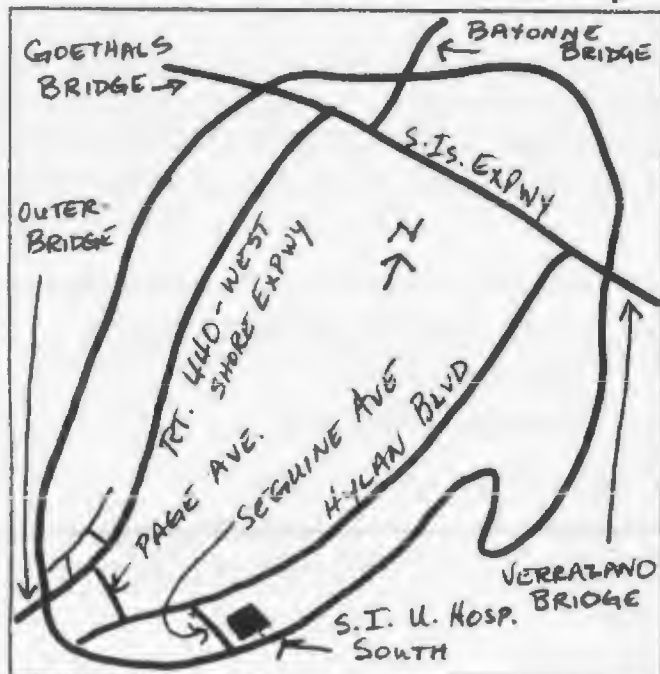 GOETHALS
BRIDGE
BAYONNE
BRIDGE
S. IS. EXPWY
OUTER-
BRIDGE
N
RT. 440 - WEST
SHORE EXPWY
PAGE AVE.
SEGUINE AVE
HYLAN BLVD
VERRAZANO
BRIDGE
S. I. U. HOSP.
SOUTH